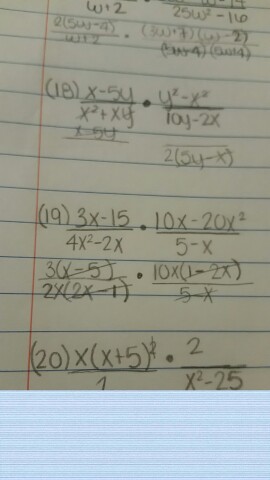 w+2 25w²-16
2(5w-4) / w+2 · (w-2)
(18) x-5y / x²+xy · y²-x² / 10y-2x
x-5y 2(5y-x)
(19) 3x-15 / 4x²-2x · 10x-20x² / 5-x
3(x-5) / 2x(2x-1) · 10x(1-2x) / 5-x
(20) x(x+5)² / 1 · 2 / x²-25